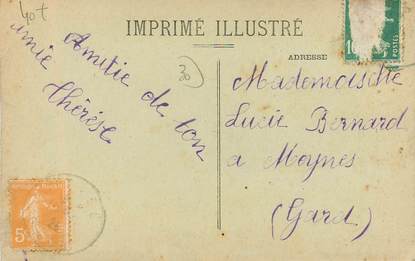 40f
IMPRIMÉ ILLUSTRÉ
ADRESSE
30
Amitie de ton
amie
thérèse
Mademoiselle
Lucie Bernard
a Meynes
(Gard)
5c
10
POSTES